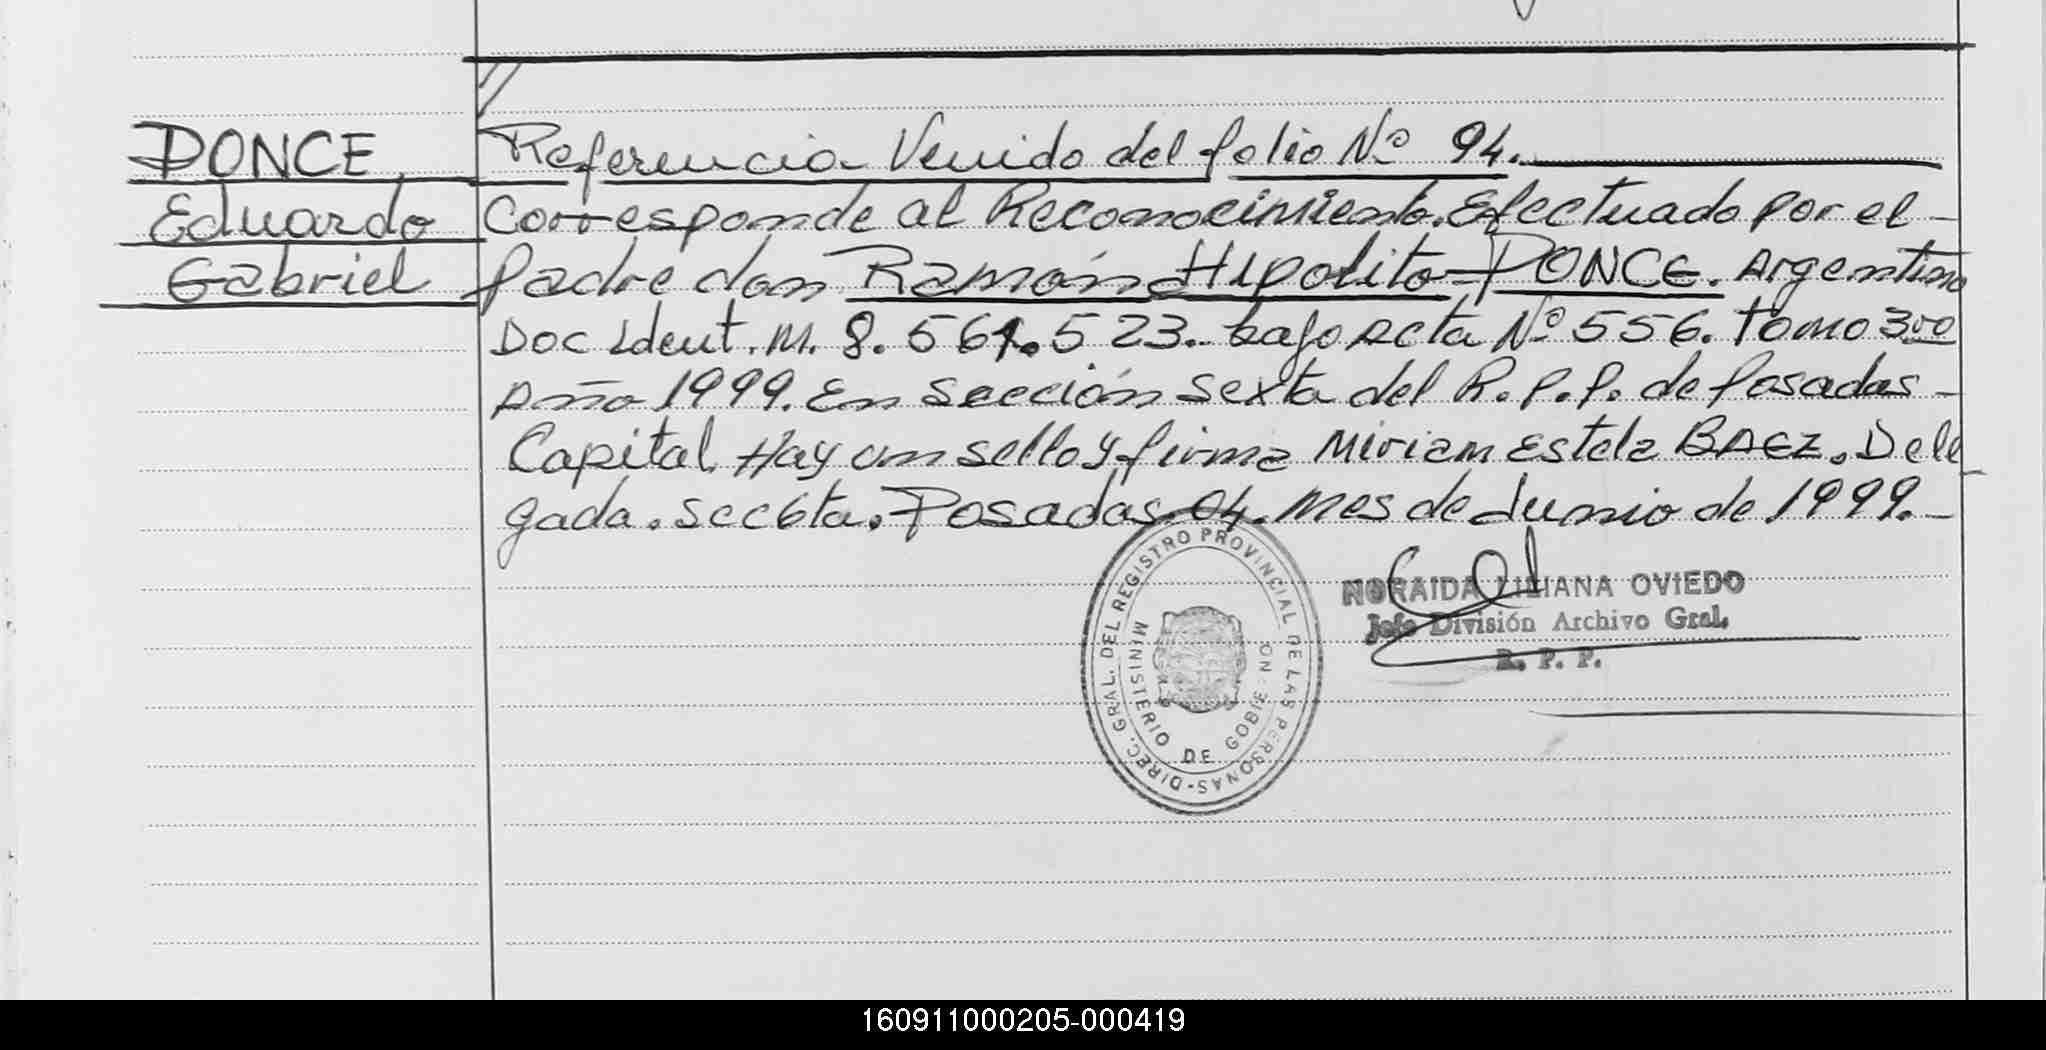 PONCE, Referencia Venido del folio Nº 94.
Eduardo Corresponde al Reconocimiento. Efectuado por el -
Gabriel padre don Ramón Hipolito PONCE. Argentino
Doc Ident. M. 8. 561. 523. bajo acta Nº 556. tomo 3ro
Año 1999. En sección sexta del R. P. P. de Posadas -
Capital. Hay un sello y firma Miriam Estela BAEZ. Dele
gada. sec 6ta. Posadas 04. mes de Junio de 1999. -
DIREC. GRAL. DEL REGISTRO PROVINCIAL DE LAS PERSONAS -
MINISTERIO DE GOBIERNO
NORAIDA LILIANA OVIEDO
Jefe División Archivo Gral.
R. P. P.
160911000205-000419